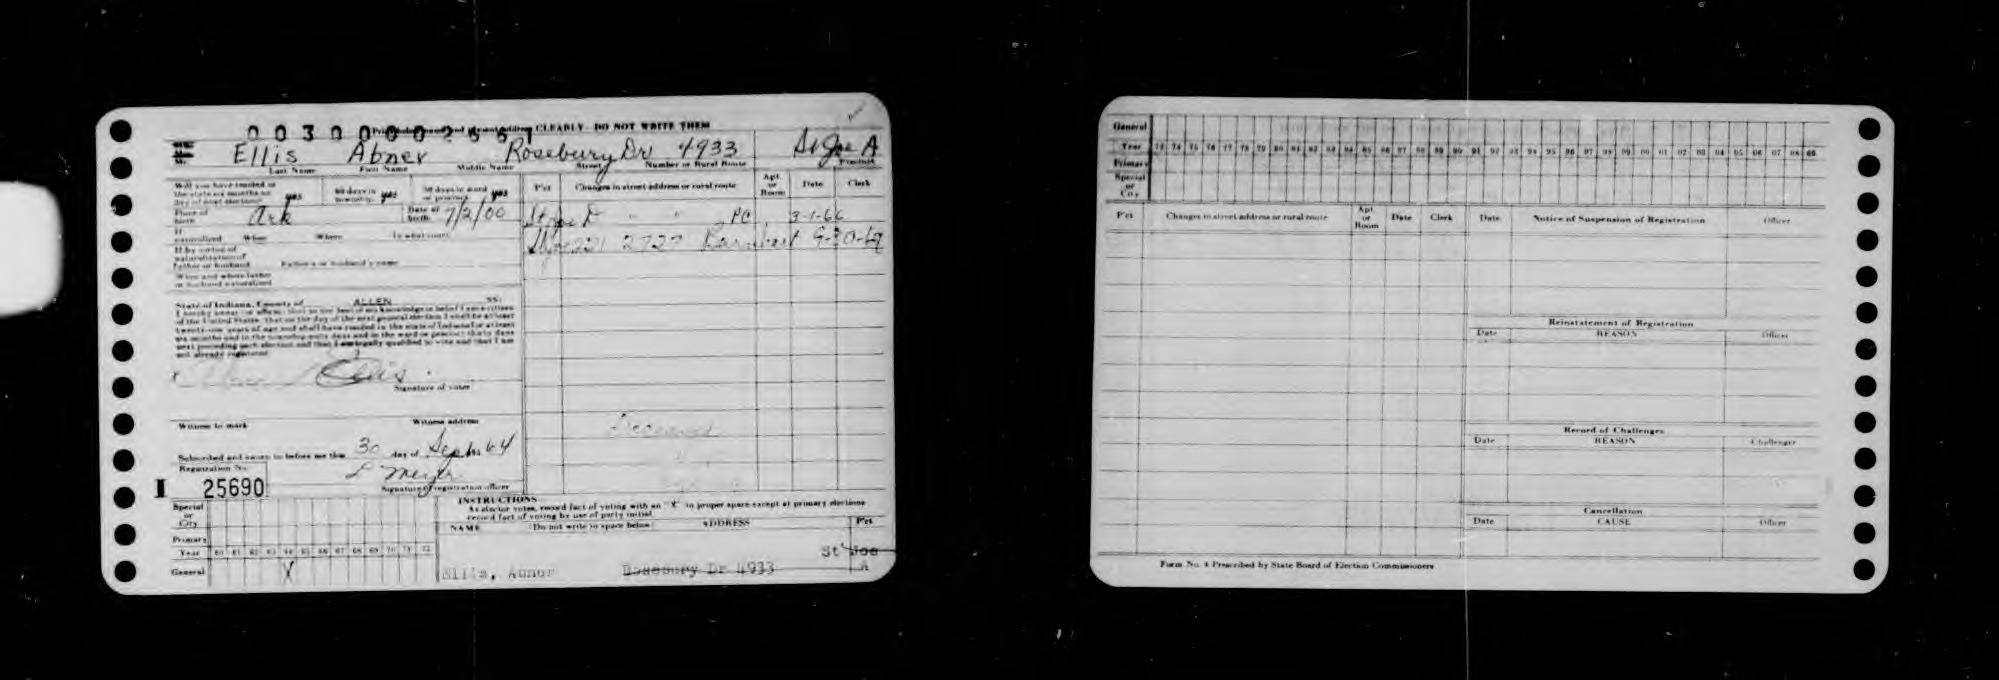 CLEARLY DO NOT WRITE THEM
Mr. Ellis Abner Rosebury Dr 4933 St Joe A
Last Name First Name Middle Name Street Number or Rural Route Precinct
Will you have resided in the state six months on day of next election? yes 60 days in township yes 30 days in ward or precinct yes
P'ct Changes in street address or rural route Apt. or Room Date Clerk
Place of birth Ark Date of birth 7/2/00
St Joe " " PC 3-1-66
If naturalized When Where In what court
St Joe 221 2727
If by virtue of naturalization of father or husband Father's or husband's name
When and where father or husband naturalized
State of Indiana, County of ALLEN SS:
I hereby swear (or affirm) that to the best of my knowledge or belief I am a citizen
of the United States, that on the day of the next general election I shall be at least
twenty-one years of age and shall have resided in the state of Indiana for at least
six months and in the township sixty days and in the ward or precinct thirty days
next preceding such election and that I am legally qualified to vote and that I am
not already registered
x Ellis
Signature of voter
Deceased
Witness to mark Witness address
Subscribed and sworn to before me this 30 day of Sept 64
L Meyer
Registration No. Signature of registration officer
I 25690
INSTRUCTIONS
As elector votes, record fact of voting with an "X" in proper space except at primary elections
record fact of voting by use of party initial.
NAME (Do not write in space below) ADDRESS P'ct
Special or City
Primary
Year 60 61 62 63 64 65 66 67 68 69 70 71 72
General X
Ellis, Abner Rosebury Dr 4933 St Joe A
General
Year 73 74 75 76 77 78 79 80 81 82 83 84 85 86 87 88 89 90 91 92 93 94 95 96 97 98 99 00 01 02 03 04 05 06 07 08 09
Primary
Special or City
P'ct Changes in street address or rural route Apt. or Room Date Clerk Date Notice of Suspension of Registration Officer
Reinstatement of Registration
Date REASON Officer
Record of Challenges
Date REASON Challenger
Cancellation
Date CAUSE Officer
Form No. 4 Prescribed by State Board of Election Commissioners